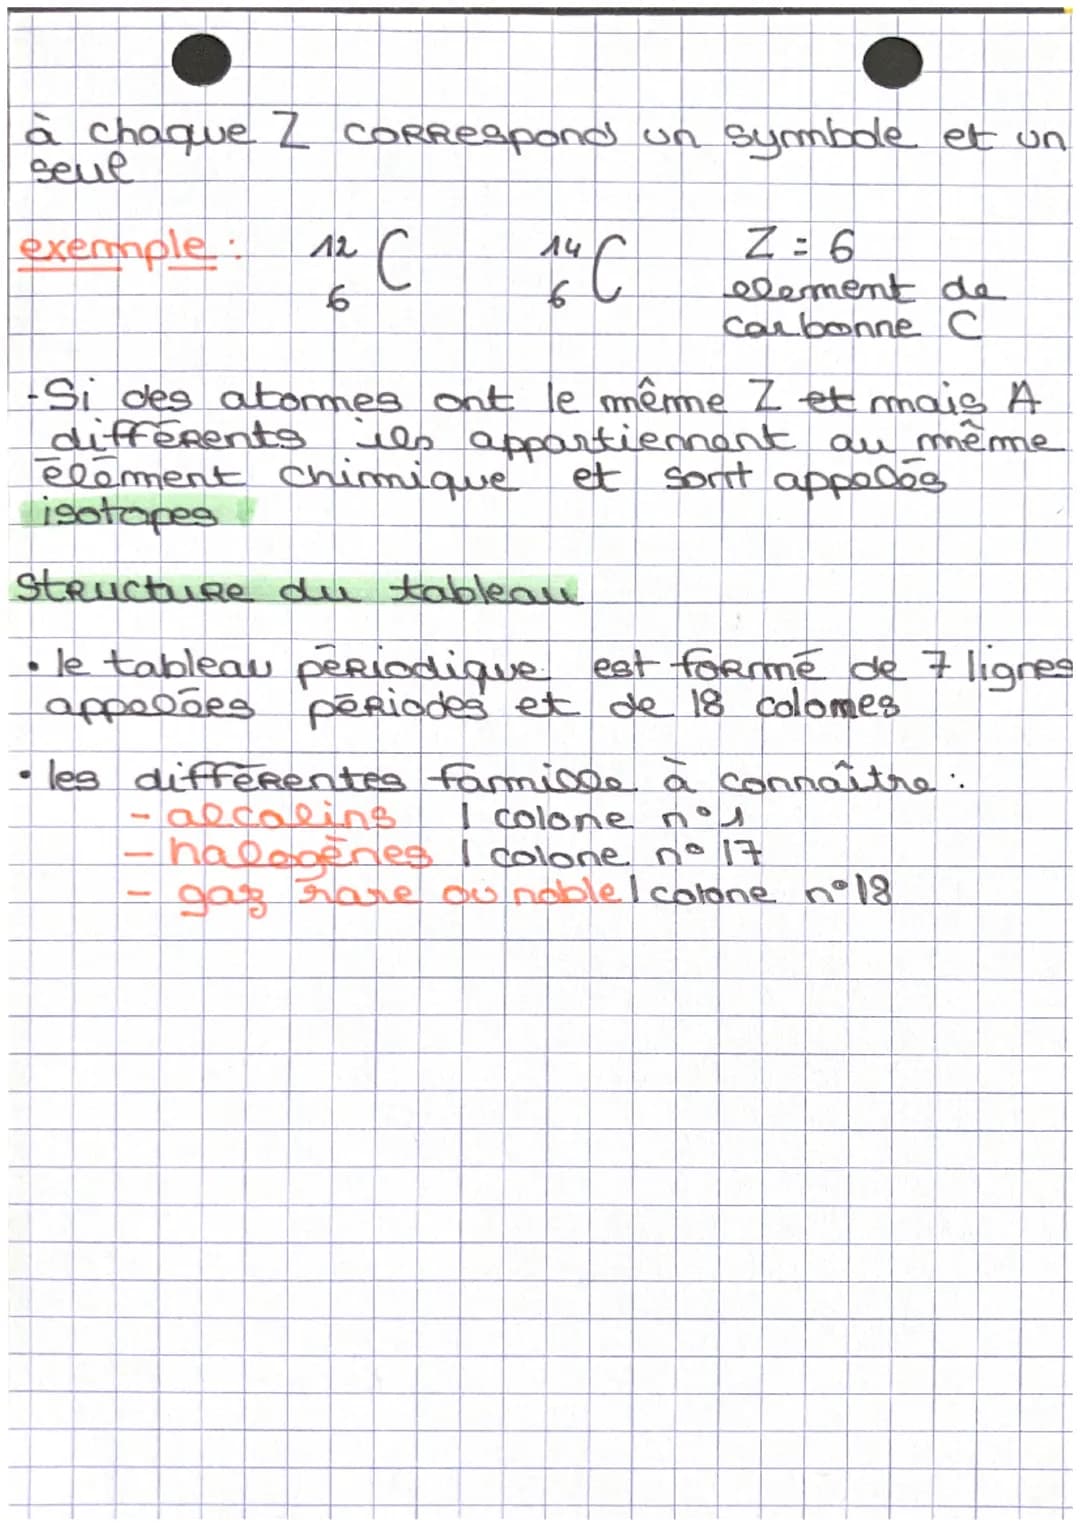 à chaque Z correspond un symbole et un
seul
exemple : ¹²₆C ¹⁴₆C Z = 6
element de
carbonne C
-Si des atomes ont le même Z et mais A
différents ils appartiennent au même
élément chimique et sont appelés
isotopes
Structure du tableau
• le tableau périodique est formé de 7 lignes
appelées périodes et de 18 colomes
• les différentes famille à connaître :
- alcalins | colone n°1
- halogènes | colone n°17
- gaz rare ou noble | colone n°18